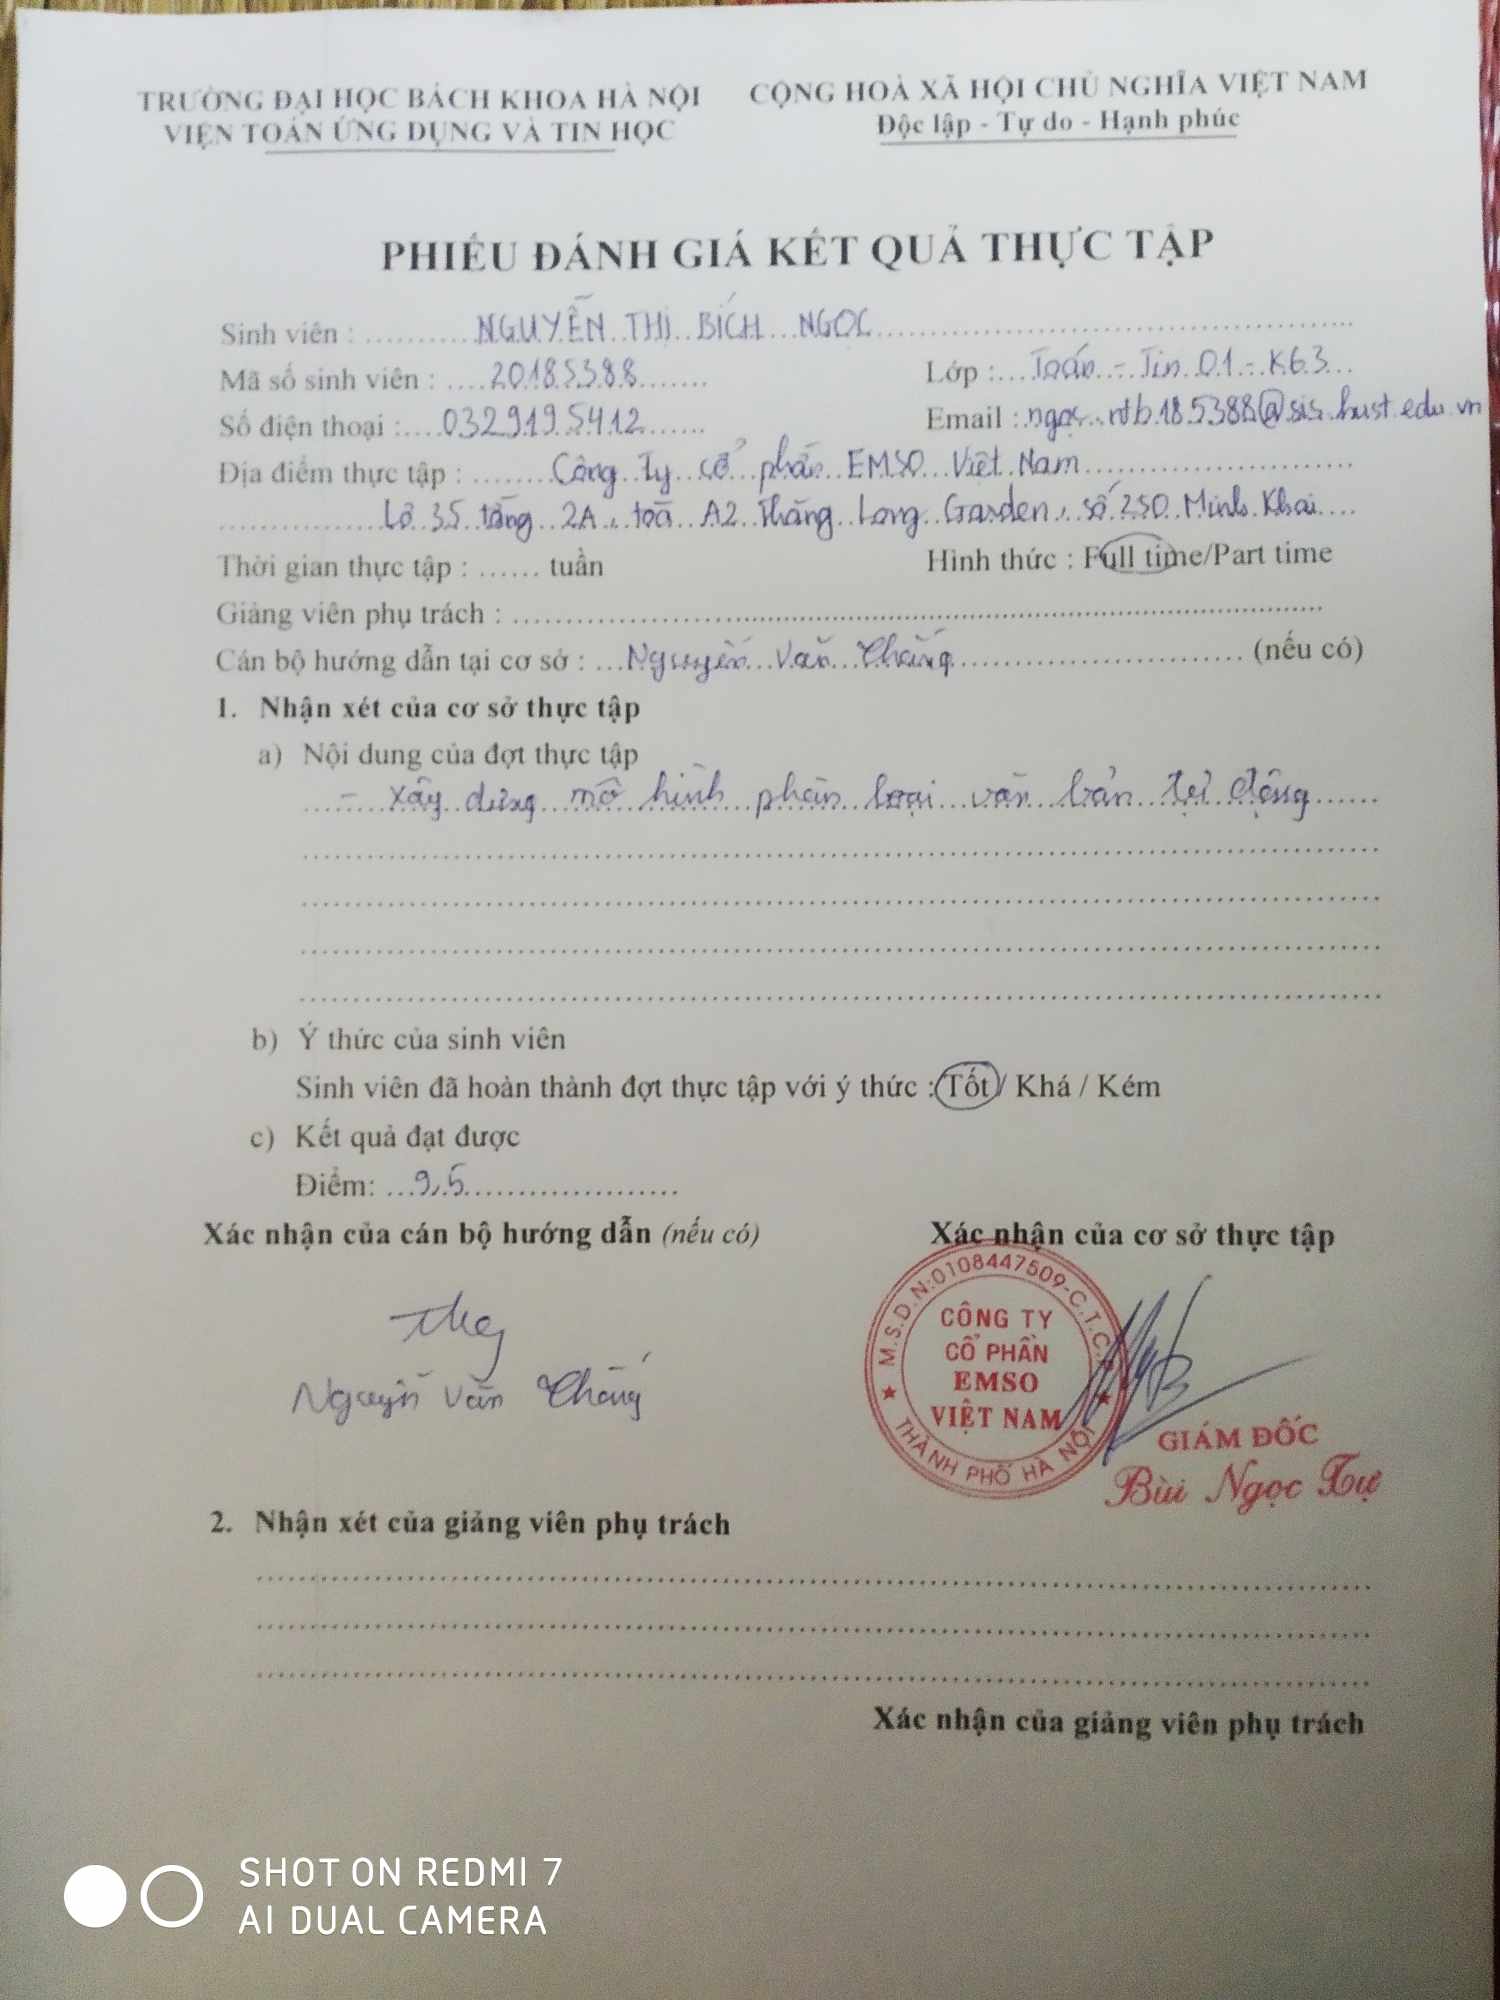 TRƯỜNG ĐẠI HỌC BÁCH KHOA HÀ NỘI
VIỆN TOÁN ỨNG DỤNG VÀ TIN HỌC
CỘNG HOÀ XÃ HỘI CHỦ NGHĨA VIỆT NAM
Độc lập - Tự do - Hạnh phúc
PHIẾU ĐÁNH GIÁ KẾT QUẢ THỰC TẬP
Sinh viên : NGUYỄN THỊ BÍCH NGỌC
Mã số sinh viên : 20185388 Lớp : Toán - Tin 01 - K63
Số điện thoại : 0329195412 Email : ngoc.ntb185388@sis.hust.edu.vn
Địa điểm thực tập : Công Ty cổ phần EMSO Việt Nam
Lô 35 tầng 2A, toà A2 Thăng Long Garden, số 250 Minh Khai
Thời gian thực tập : ...... tuần Hình thức : Full time/Part time
Giảng viên phụ trách :
Cán bộ hướng dẫn tại cơ sở : Nguyễn Văn Thắng (nếu có)
1. Nhận xét của cơ sở thực tập
a) Nội dung của đợt thực tập
- Xây dựng mô hình phân loại văn bản tự động
b) Ý thức của sinh viên
Sinh viên đã hoàn thành đợt thực tập với ý thức : Tốt / Khá / Kém
c) Kết quả đạt được
Điểm: 9,5
Xác nhận của cán bộ hướng dẫn (nếu có) Xác nhận của cơ sở thực tập
Nguyễn Văn Thắng
M.S.D.N:0108447509-C.T.C.P
CÔNG TY
CỔ PHẦN
EMSO
VIỆT NAM
THÀNH PHỐ HÀ NỘI
GIÁM ĐỐC
Bùi Ngọc Tự
2. Nhận xét của giảng viên phụ trách
Xác nhận của giảng viên phụ trách
SHOT ON REDMI 7
AI DUAL CAMERA